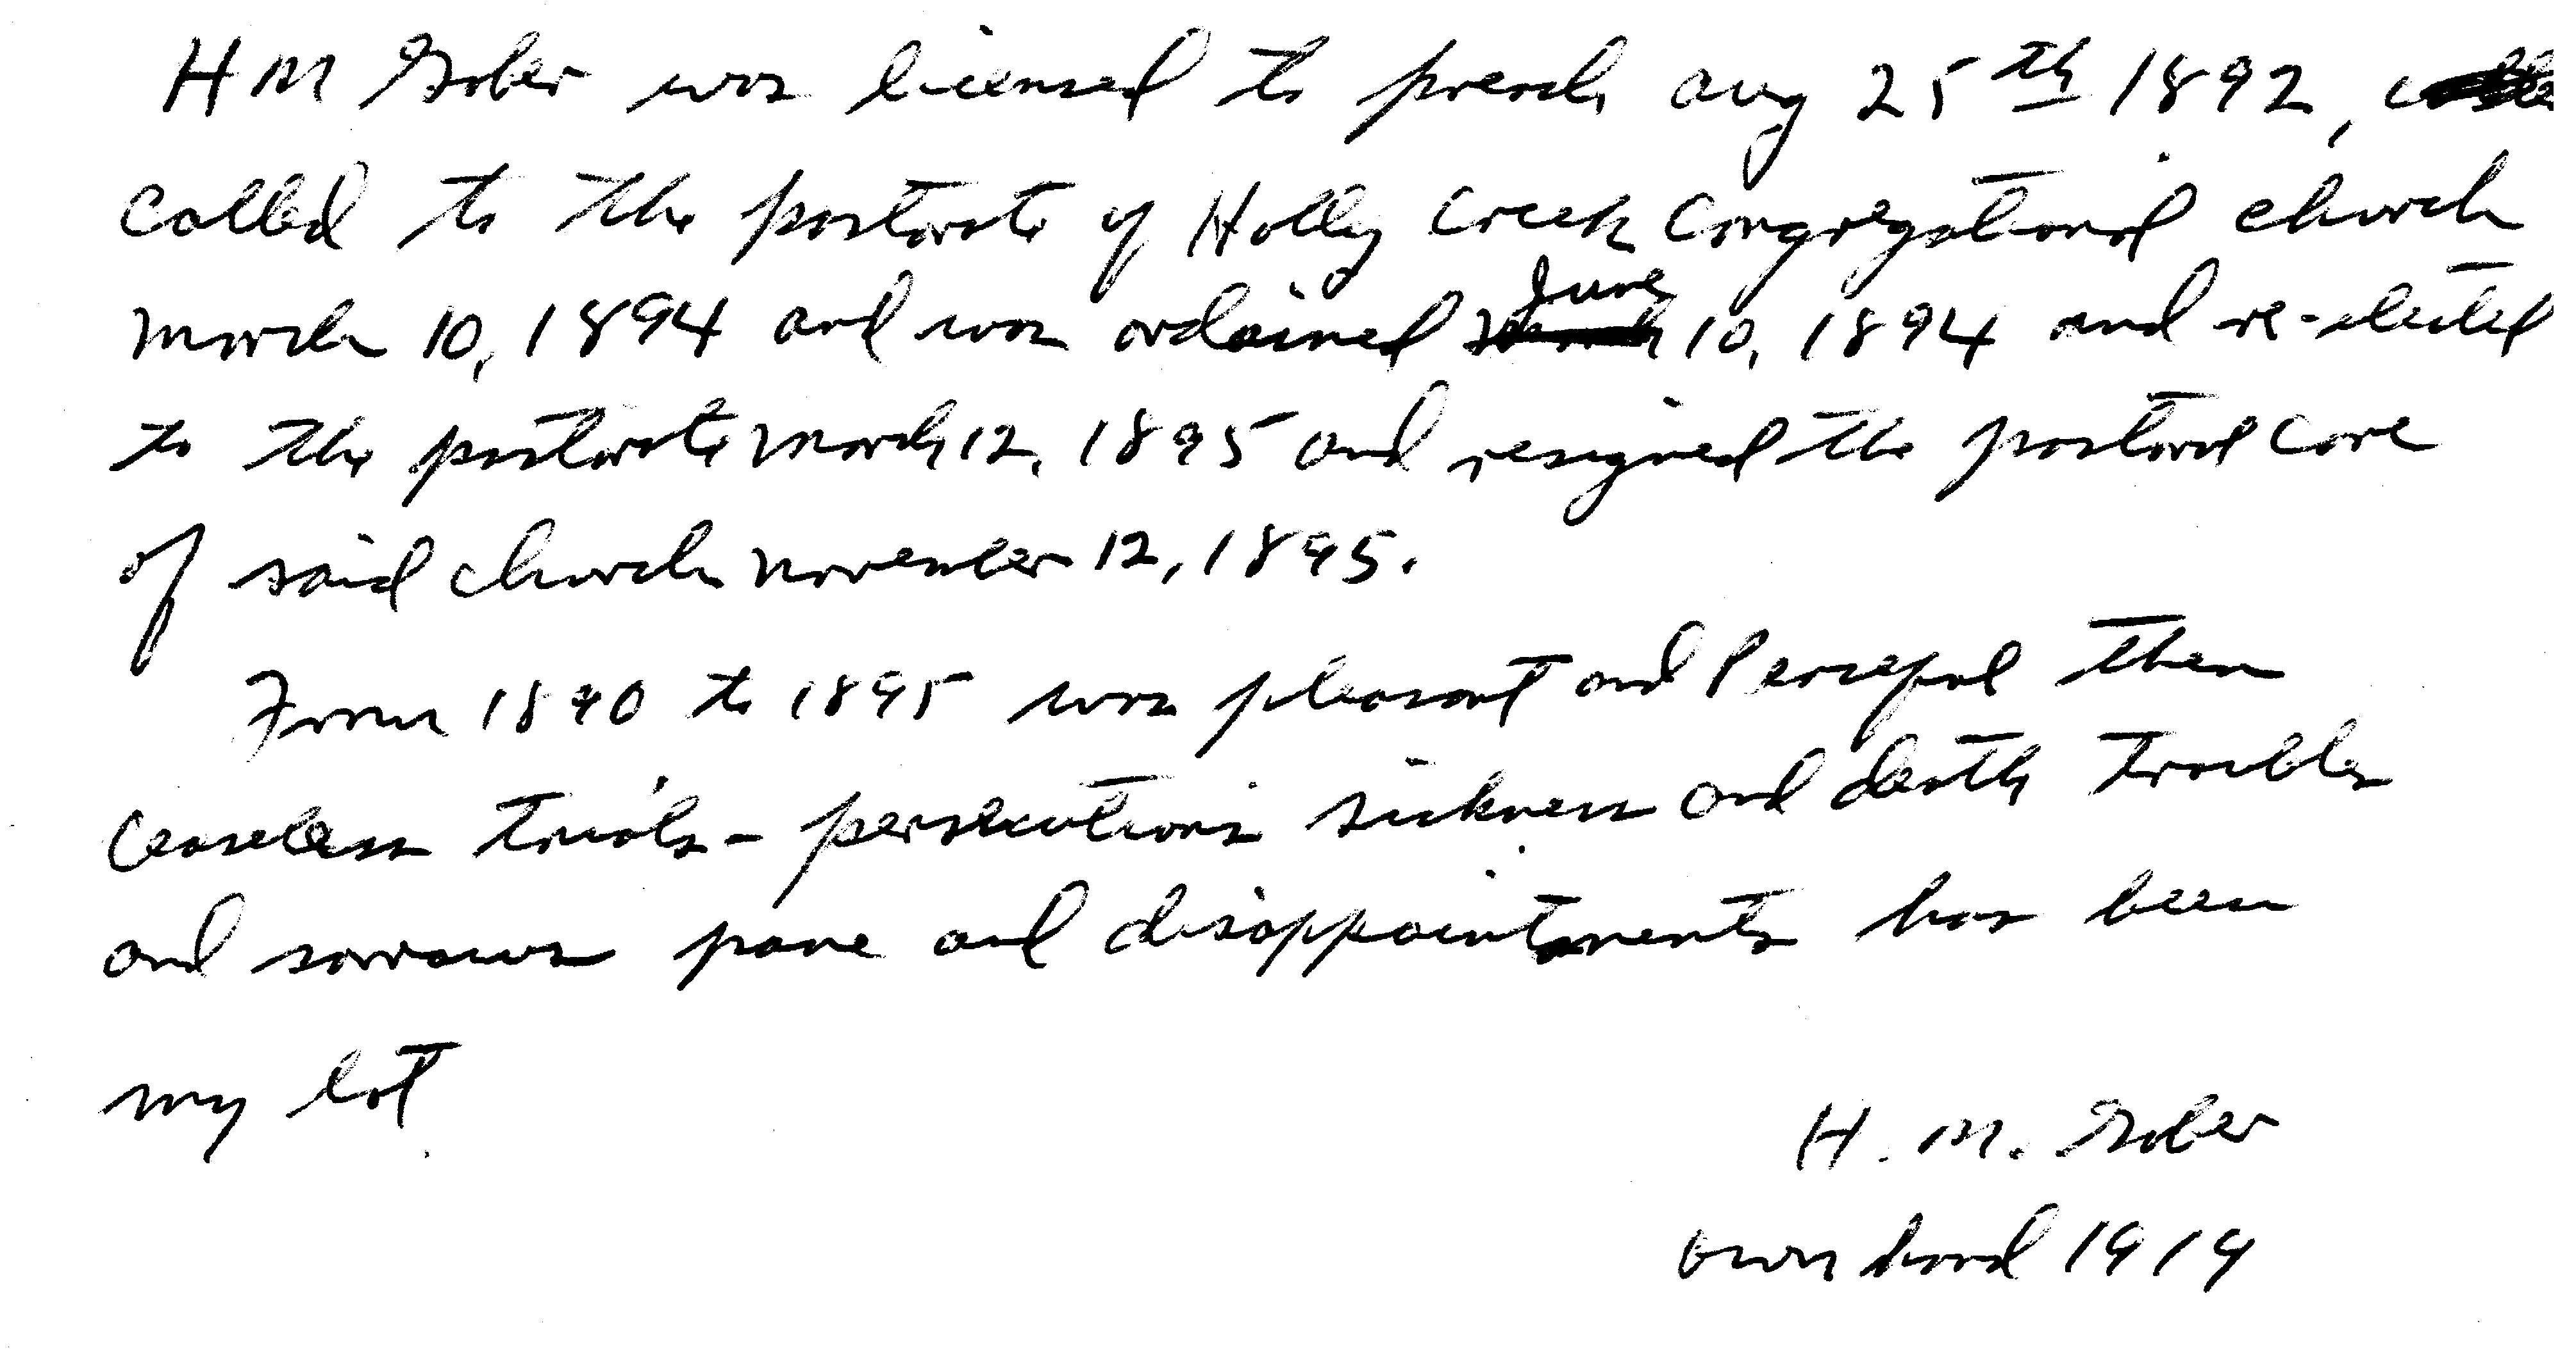 H M Gober was licensed to preach aug 25th 1892,
called to the pastorate of Holly Creek Congregational church
March 10, 1894 and was ordained June 10, 1894 and re-elected
to the pastorate March 12, 1895 and resigned the pastoral care
of said church November 12, 1895.
From 1890 to 1895 was pleasant and Peaceful then
Ceaseless trials - persecutions sickness and death troubles
and sorrows pane and disappointments has been
my lot
H. M. Gober
own hand 1919